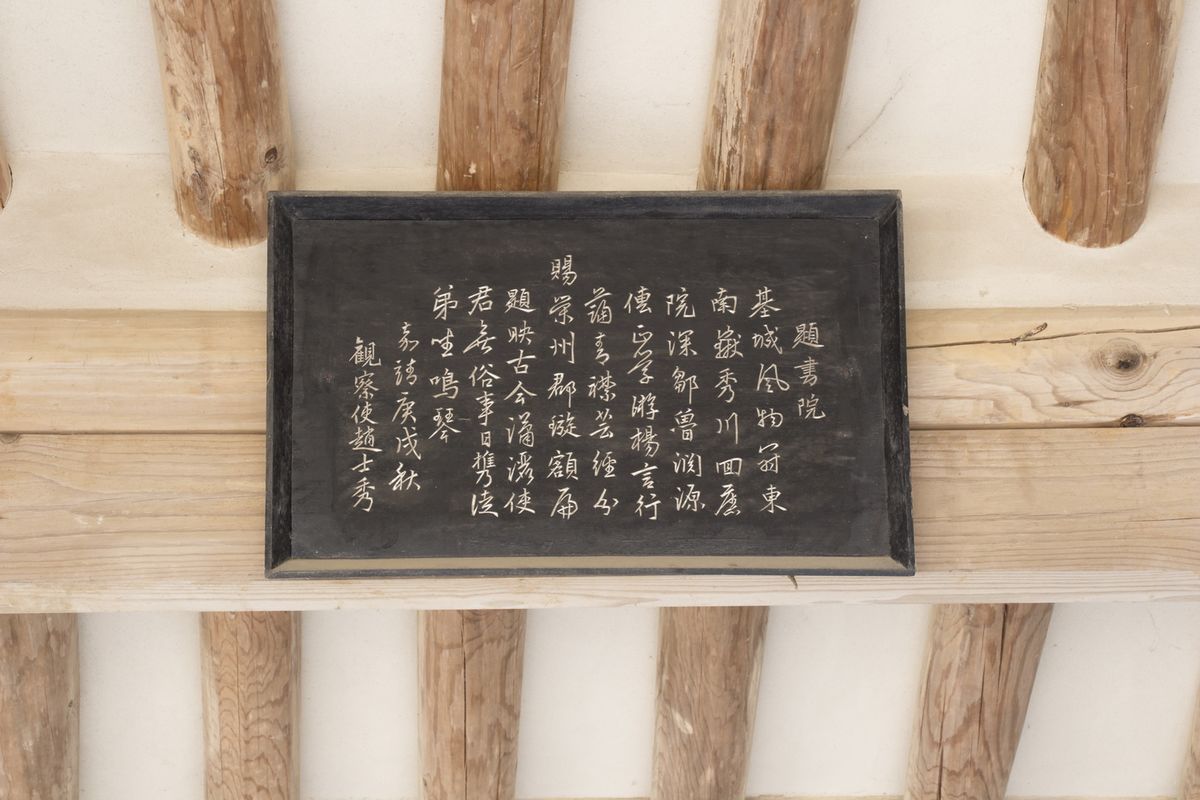 題書院
基城風物冠東
南嶽秀川回舊
院深鄒魯淵源
傳正學游楊言行
藹青襟芸經分
賜榮州郡璇額扁
題映古今瀟洒使
君無俗事日携徒
弟坐鳴琴
嘉靖庚戌秋
觀察使趙士秀